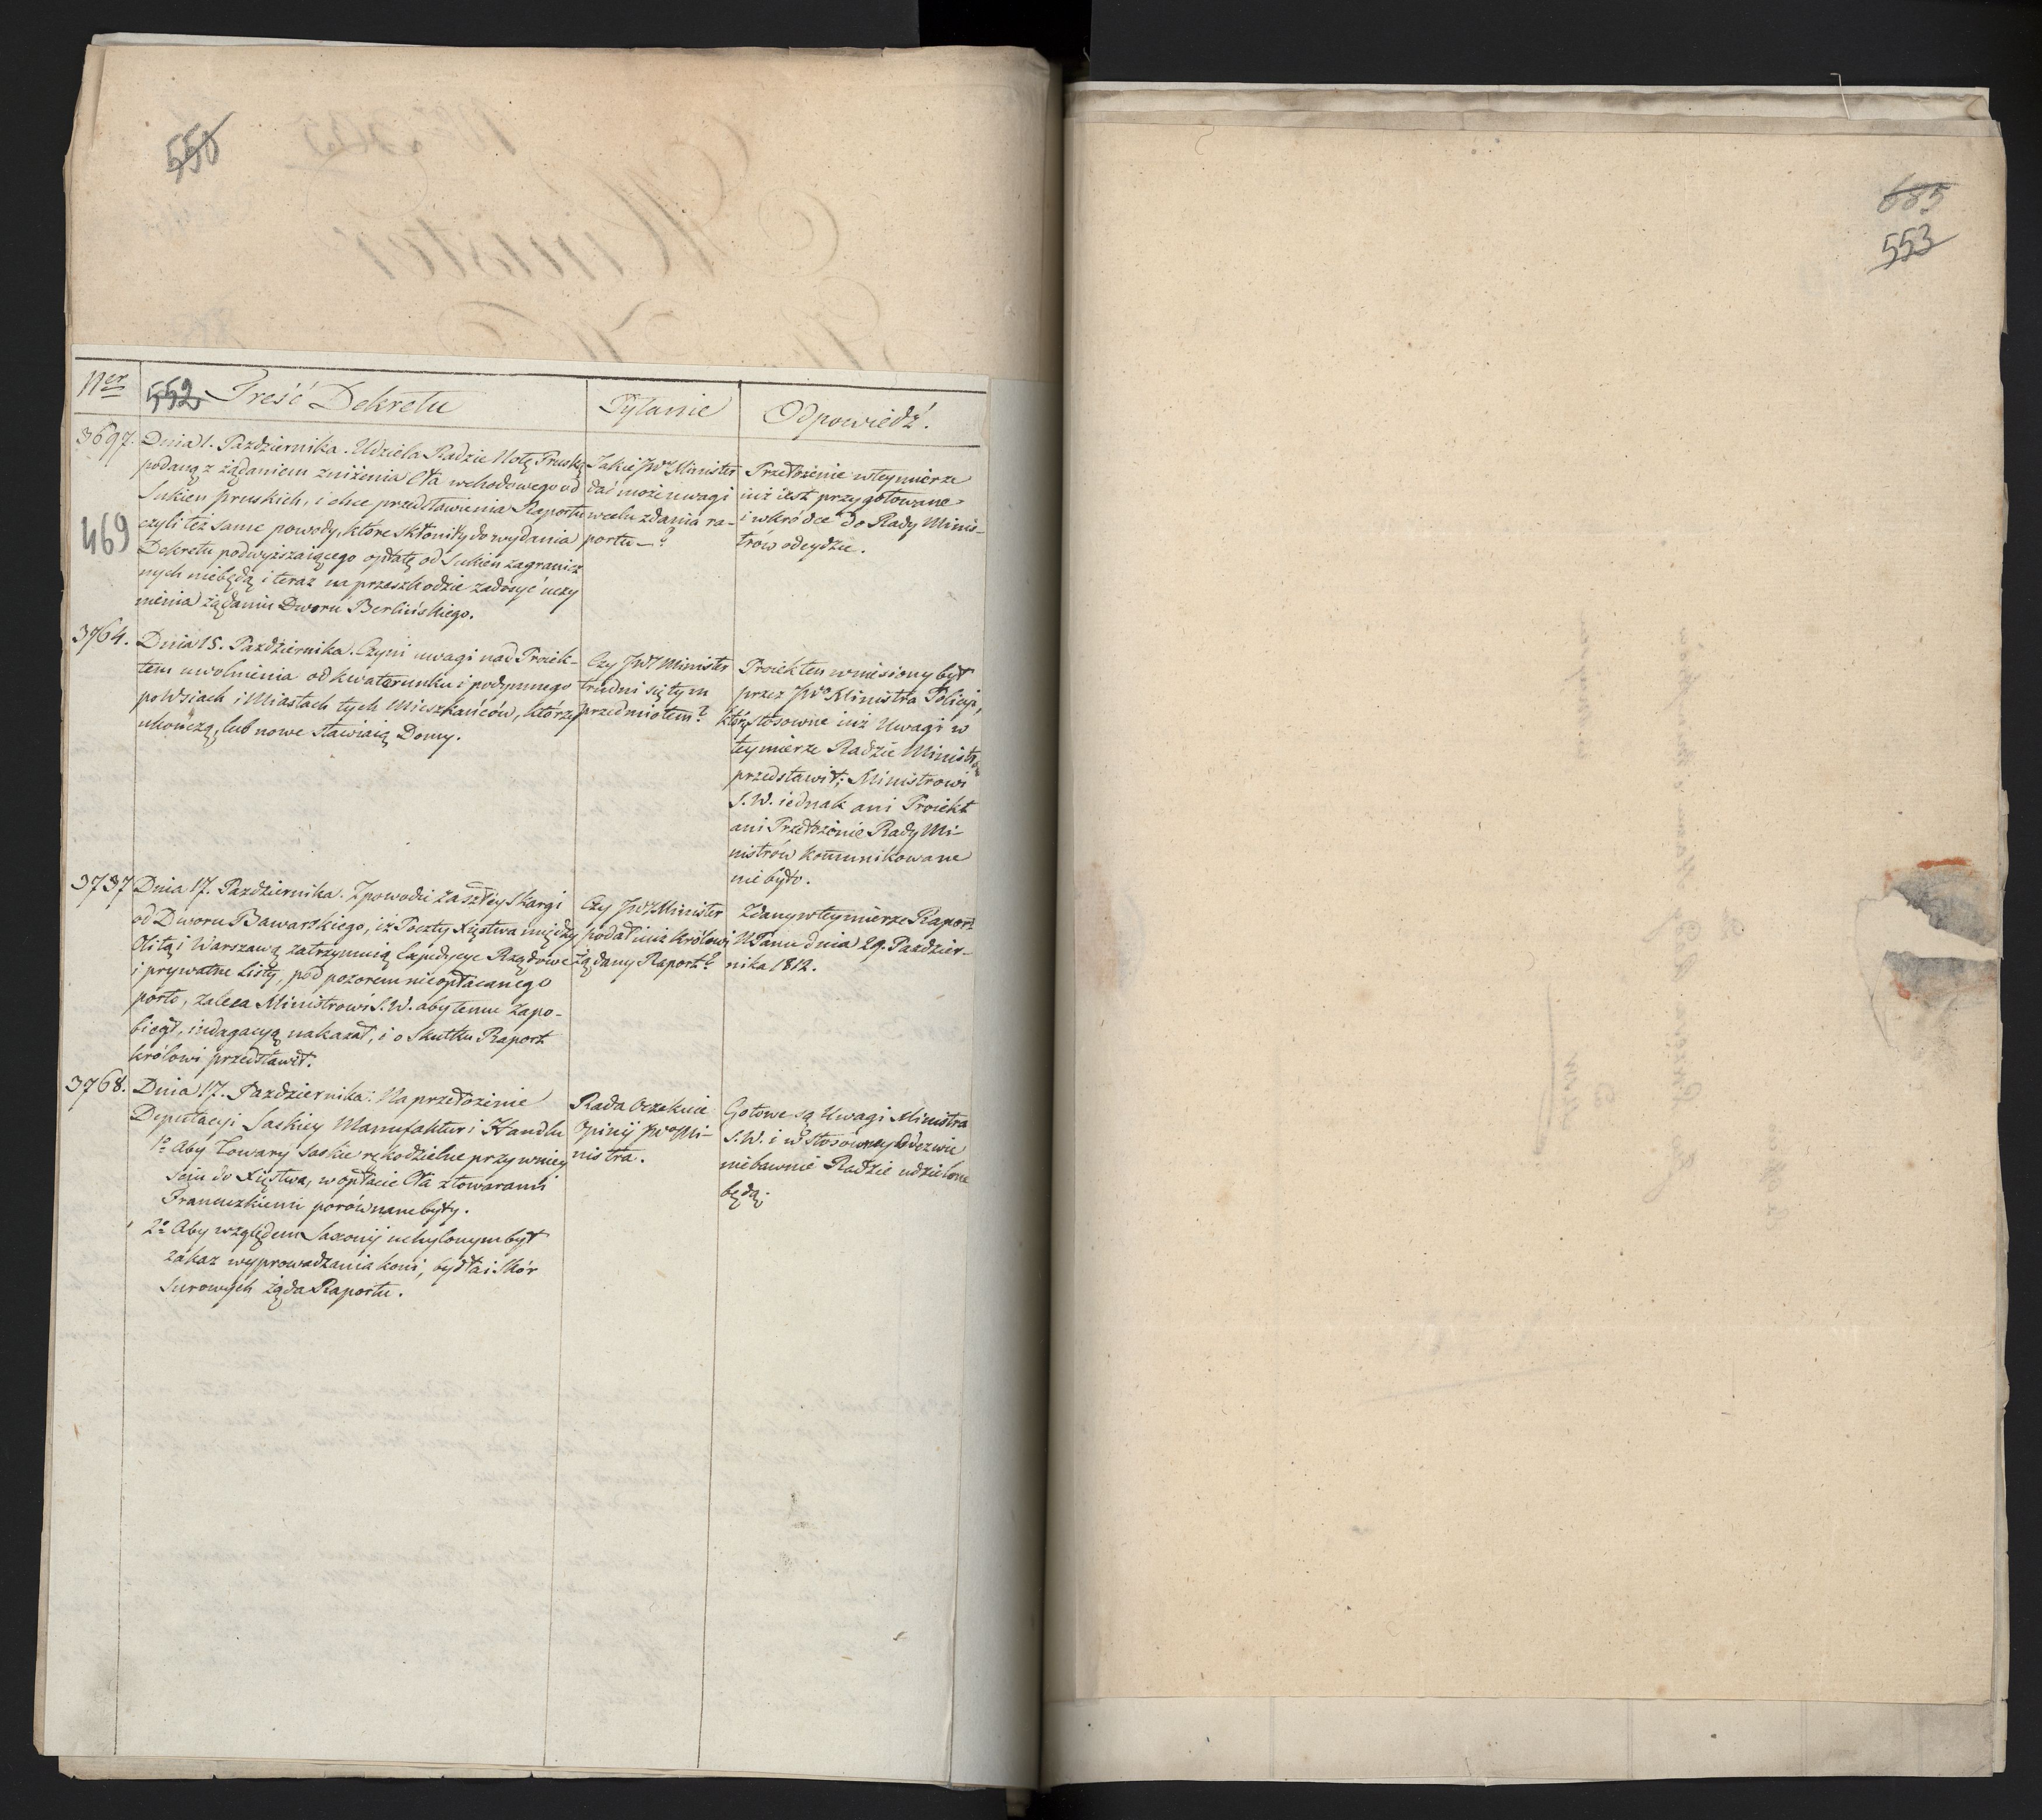 550
Ner
552
Treść Dekretu
Pytanie
Odpowiedź.
3697.
469
Dnia 1. Pazdziernika. Udziela Radzie Notę Pruską
podaną z żądaniem zniżenia Cła wchodowego od
Sukien pruskich, i chce przedstawienia Raportu
czyli też same powody, które skłoniły do wydania
Dekretu podwyższaiącego opłatę od Sukien zagranicz
nych niebędą i teraz na przeszkodzie zadosyć uczy
nienia żądaniu Dworu Berlińskiego.
Jakie JWY Minister
dać może uwagi
w celu zdania ra-
portu —?
Przełożenie w tey mierze
iuż iest przygotowane
i wkrótce do Rady Minis-
trów odeydzie.
3764.
Dnia 15. Pazdziernika. Czyni uwagi nad Proiek-
tem uwolnienia od kwaterunku i podymnego
po Wsiach i Miastach tych Mieszkańców, którzy
ukończą, lub nowe stawiaią Domy.
Czy JWY Minister
trudni się tym
przedmiotem?
Proiekt ten wniesiony był
przez JWo Ministra Policyi,
który stosowne iuż Uwagi w
tey mierze Radzie Ministrów
przedstawił; Ministrowi
S. W. iednak ani Proiekt
ani Przełożenie Rady Mi-
nistrów komunikowane
nie było.
3737
Dnia 17. Pazdziernika. Z powodu zaszłey Skargi
od Dworu Bawarskiego, iż Poczty Xięstwa między
Olitą i Warszawą zatrzymuią Expedycye Rządowe
i prywatne Listy, pod pozorem nieopłacanego
porto, zaleca Ministrowi S. W. aby temu zapo-
biegł, indagacyą nakazał, i o Skutku Raport
królowi przedstawił.
Czy JWY Minister
podał iuż królowi
żądany Raport?
Zdany w tey mierze Raport
N Panu dnia 29. Pazdzier-
nika 1812.
3768.
Dnia 17. Pazdziernika. Na przełożenie
Deputacyi Saskiey Manufaktur i Handlu
1o Aby Towary Saskie rękodzielne przy wniey
Seiu do Xięstwa, w opłacie Cła z towarami
Francuzkiemi porównane były.
2o Aby względem Saxonij uchylonym był
zakaz wyprowadzania koni, bydła i Skór
Surowych żąda Raportu.
Rada oczekuie
Opinij JWo Mi-
nistra.
Gotowe są Uwagi Ministra
S. W. i w Stosowney odezwie
niebawnie Radzie udzielone
będą.
685
553